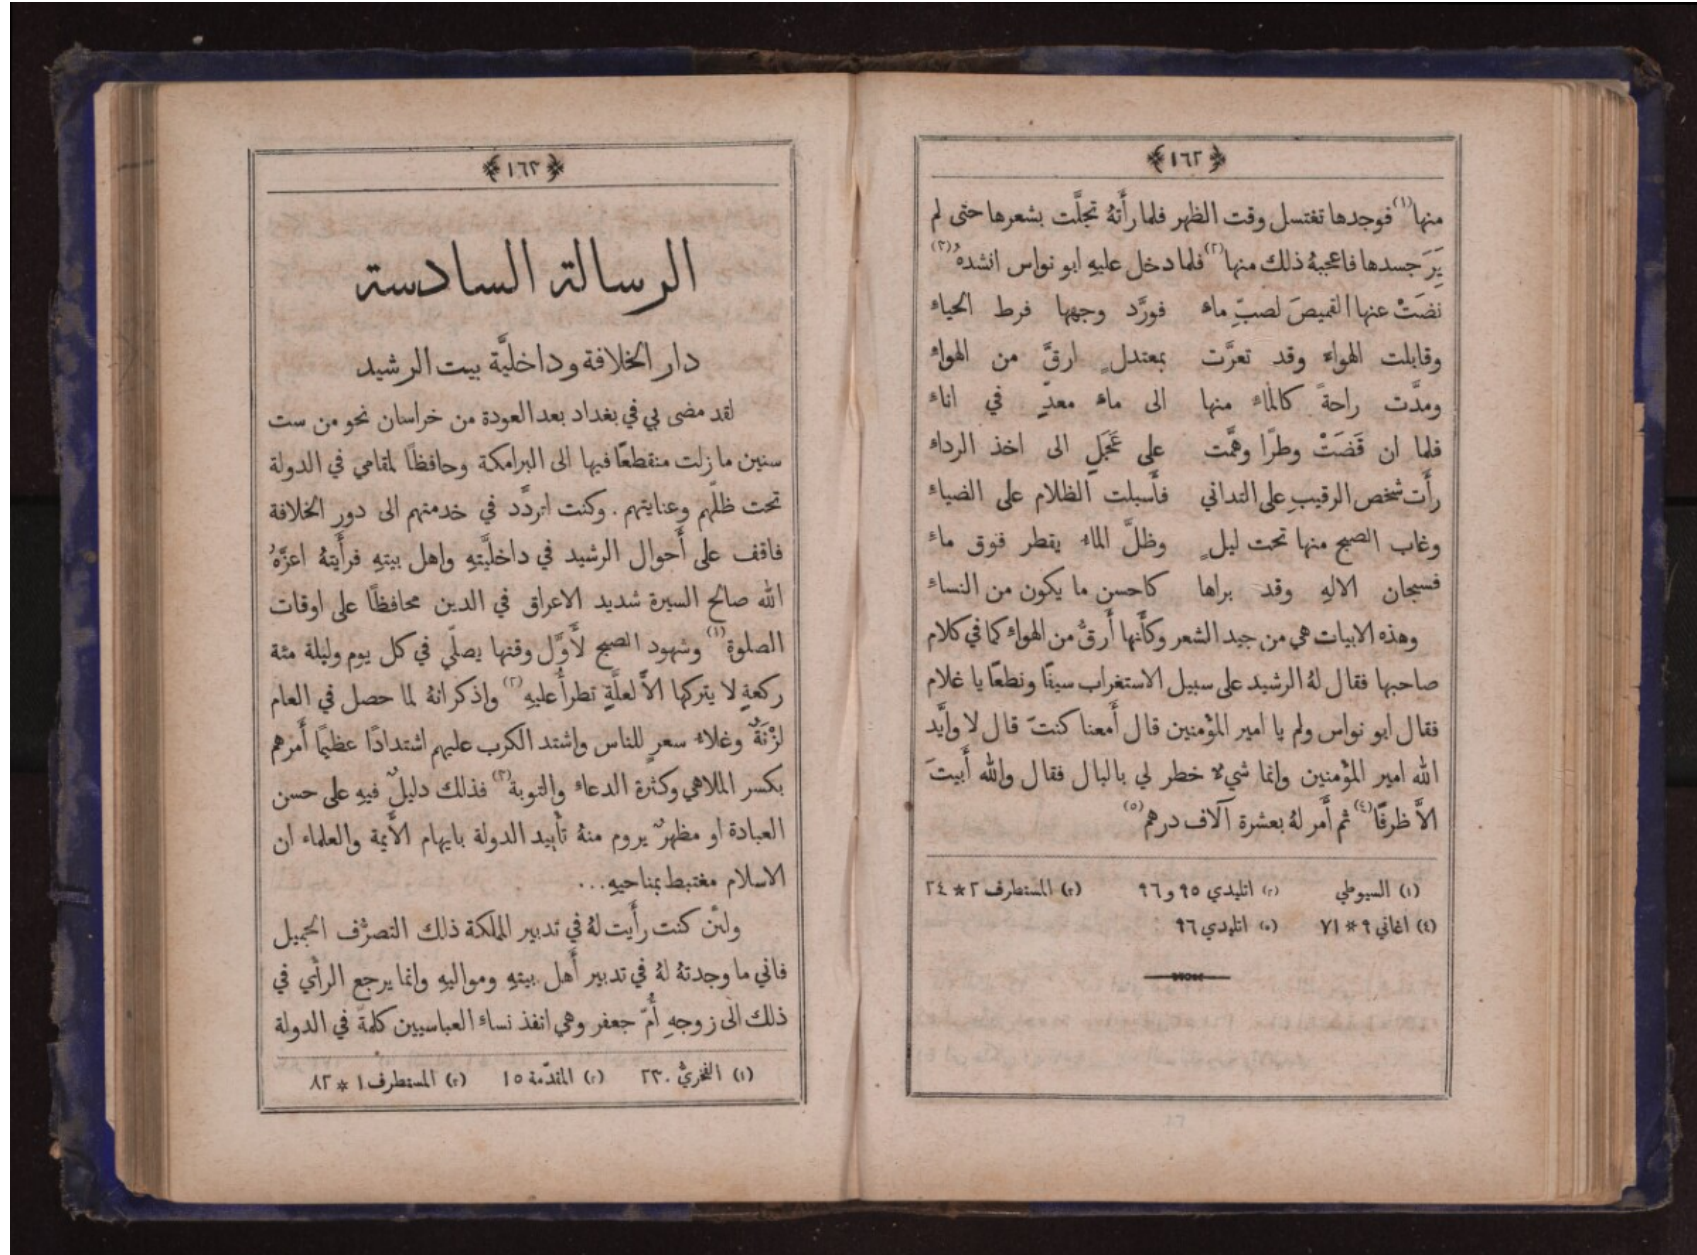 ﴿١٦٢﴾
منها(١) فوجدها تغتسل وقت الظهر فلما رأَتهُ تجلَّت بشعرها حتى لم
يَرَ جسدها فاعجبهُ ذلك منها(٢) فلما دخل عليهِ ابو نواس انشدهُ(٣)
نضَتْ عنها القميصَ لصبّ ماءِ فورَّد وجهها فرط الحياءِ
وقابلت الهواءَ وقد تعرَّت بمعتدلٍ ارقَّ من الهواءِ
ومدَّت راحةً كالماءِ منها الى ماءِ معدٍّ في اناءِ
فلما ان قَضَتْ وطرًا وهمَّت على عَجَلٍ الى اخذ الرداءِ
رأَت شخص الرقيبِ على التداني فأَسبلت الظلام على الضياءِ
وغاب الصبح منها تحت ليلٍ وظلَّ الماءُ يقطر فوق ماءِ
فسبحان الالهِ وقد براها كاحسن ما يكون من النساءِ
وهذه الابيات هي من جيد الشعر وكأَنها أَرقُّ من الهواءِ كما في كلام
صاحبها فقال لهُ الرشيد على سبيل الاستغراب سيفًا ونطعًا يا غلام
فقال ابو نواس ولم يا امير المؤْمنين قال أَمعنا كنتَ قال لا وأَيد
الله امير المؤْمنين وانما شيءٌ خطر لي بالبال فقال والله أَبيتَ
الاَّ ظرفًا(٤) ثم أَمر لهُ بعشرة آلاف درهم(٥)
(١) السيوطي (٢) اتليدي ٩٥ و٩٦ (٣) المستطرف ٢ * ٢٤
(٤) اغاني ٩ * ٧١ (٥) اتليدي ٩٦
﴿١٦٣﴾
الرسالة السادسة
دار الخلافة وداخليَّة بيت الرشيد
لقد مضى بي في بغداد بعد العودة من خراسان نحو من ست
سنين ما زلت منقطعًا فيها الى البرامكة وحافظًا لمقامي في الدولة
تحت ظلّهم وعنايتهم. وكنت اتردَّد في خدمتهم الى دور الخلافة
فاقف على أَحوال الرشيد في داخليَّتهِ واهل بيتهِ فرأَيتهُ اعزَّهُ
الله صالح السيرة شديد الاعراق في الدين محافظًا على اوقات
الصلوة(١) وشهود الصبح لأَوَّل وقتها يصلّي في كل يوم وليلة مئة
ركعةٍ لا يتركها الاَّ لعلَّةٍ تطرأُ عليهِ(٢) واذكر انهُ لما حصل في العام
لزْنَةٌ وغلاءُ سعرٍ للناس واشتد الكرب عليهم اشتدادًا عظيمًا أَمرهم
بكسر الملاهي وكثرة الدعاءِ والتوبة(٣) فذلك دليلٌ فيهِ على حسن
العبادة او مظهرٌ يروم منهُ تأْييد الدولة بايهام الأَيمة والعلماء ان
الاسلام مغتبط بمناحيهِ...
ولئن كنت رأَيت لهُ في تدبير المملكة ذلك التصرُّف الجميل
فاني ما وجدتهُ لهُ في تدبير أَهل بيتهِ ومواليهِ وانما يرجع الرأْي في
ذلك الى زوجهِ أُمّ جعفر وهي انفذ نساءِ العباسيين كلمةً في الدولة
(١) الفخريُّ ٢٣٠ (٢) المقدّمة ١٥ (٣) المستطرف ١ * ٨٢